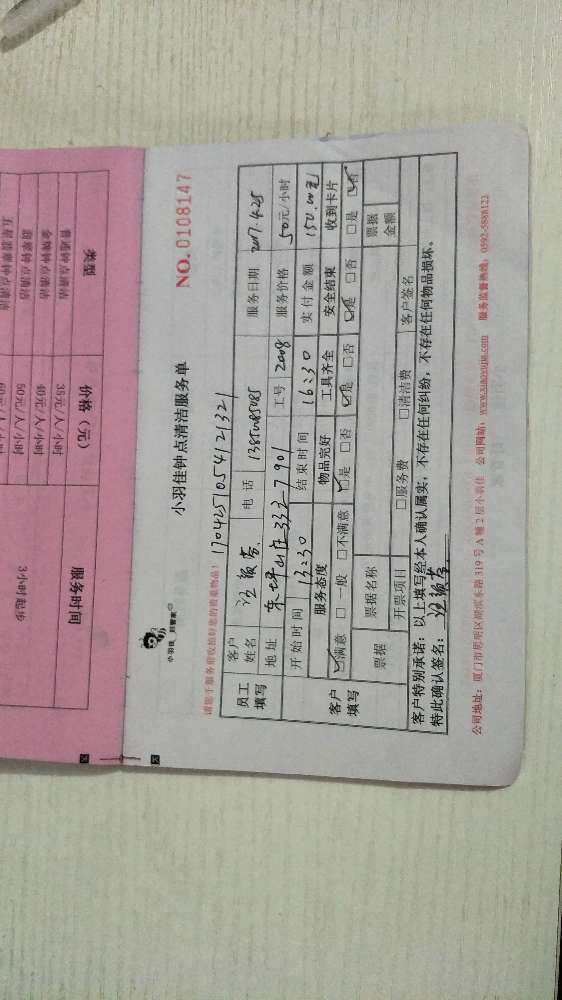 小羽佳钟点清洁服务单
NO.0108147
小羽佳 好管家
请您于服务前收拾好您的贵重物品！ 170425105412132 1
员工填写
客户姓名
电话 13850085085
服务日期 2017.4.25
地址 东坪山庄 332-7 901
工号 2008
服务价格 50元/小时
客户填写
开始时间 13:30 结束时间 16:30 实付金额 150.00元
服务态度 物品完好 工具齐全 安全结束 收到卡片
☑满意 □一般 □不满意 ☑是 □否 ☑是 □否 ☑是 □否 □是 ☑否
票据 票据名称 票据金额
开票项目 □服务费 □清洁费 客户签名
客户特别承诺：以上填写经本人确认属实，不存在任何纠纷，不存在任何物品损坏。
特此确认签名：
公司地址：厦门市思明区湖滨东路319号A幢2层小羽佳 公司网站：www.xiaoyujia.com 服务监督热线：0592-5888123
类型 价格（元） 服务时间
普通钟点清洁 35元/人/小时
金牌钟点清洁 40元/人/小时
管家钟点清洁 50元/人/小时
3小时起步